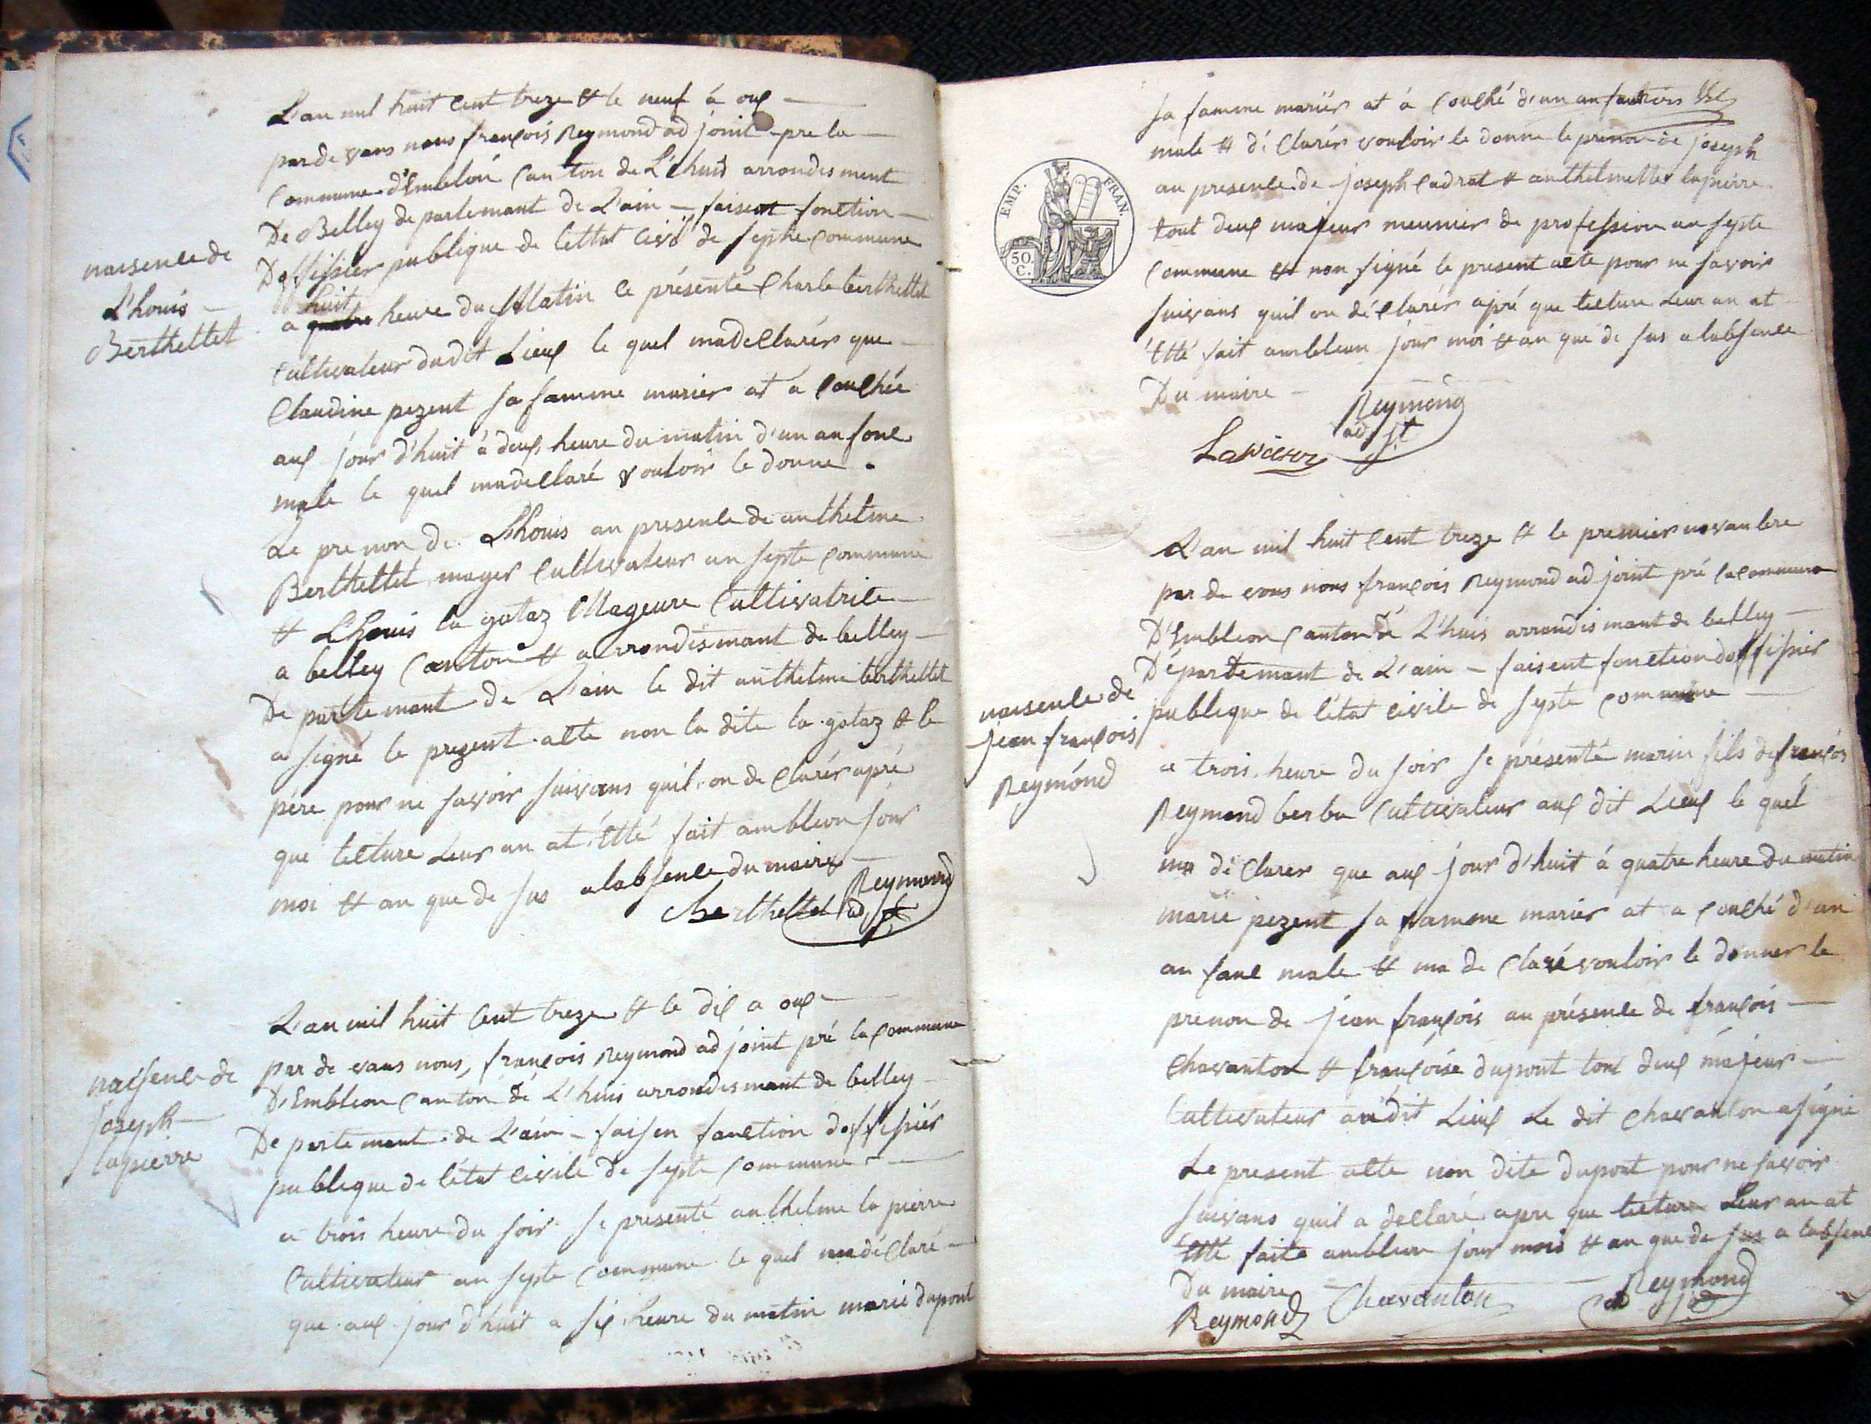 L'an mil huit Cent treze & le neuf à ous
par de vans nous françois Reymond ad joint pre la
Commune d'Embléon Canton de L'huis arrondisment
De Belley de partemant de L'ain — faisent fonction —
Doffissier publique de lettat Civil de septe Commune
naisence de
L'houis
Berthettet
huit
a quatre heure du Matin Ce présenté Charle berthettet
Cultivateur dudit Lieux le quel madeClarér que
Claudine pezent sa famme mariér at a Couchée
aux jour d'huit à deux heure du matin d'un an font
male le quel madeClaré vouloir le donné
Le pre non de Lhouis an presence de anthelme
Berthettet mager Cultivateur an septe Commune
& Lhouis la gotaz Mageure Cultivatrice
a belley Canton & arrondismant de belley
De partemant de L'ain le dit anthelme berthettet
a signé le prezent atte non la dite la gotaz & le
père pour ne savoir suivans quil on de Clarér apré
que lecture Leur an at Etté fait ambleon jour
moi & an que de sus a labsence du maire
Berthettet Reymond
ad jt
L'an mil huit Cent treze & le dix a oux
par de vans nous, françois Reymond ad joint pré la Commune
D'Embleon Canton dé L'huis arrondismant de belley
naisence de
joseph
lapierre
De partemant de L'ain — faisen fonction doffissiér
publique de l'état Civile de septe Commune
a trois heure du soir se presenté anthelme la pierre
Cultivateur an septe Commune le quel madéClaré
que aux jour d'huit a six heure du matin marie dupont
sa famme mariér at à Couché d'un an
male & di Clarér vouloir le donne le prenon de joseph
an presence de joseph Cadrat & anthelme lapierre
EMP. FRAN.
50 C.
tout deux majeur meunier de profession an septe
Commune & non signé le present acte pour ne savoir
suivans quil on déClarér apré que lecture Leur an at
Etté fait ambleon jour moi & an que de sus a labsence
Du maire — Reymond
ad jt
L'an mil huit Cent treze & le premier novanbre
par de vans nous françois Reymond ad joint pré la Commune
D'Embleon Canton dé L'huis arrondismant de belley —
Départemant de L'ain — faisent fonction doffissier
naisence de
jean françois
Reymond
publique de létat Civile de septe Commune
a trois heure du soir se présenté marin fils de françois
Reymond berbu Cultivateur aux dit Lieux le quel
ma déClarer que aux jour d'huit à quatre heure du matin
marie pezent sa famme mariér at a Couché d'un
an fant male & ma de Claré vouloir le donner le
prenon de jean françois an présence de françois —
Chavanton & françoise dupont tout deux majeur —
Cultivateur audit Lieux Le dit Chavanton a signé
Le present atte non dite dupont pour ne savoir
suivans quil a declaré apre que lecture Leur an at
Etté faite ambleon jour mois & an que de sus a labsence
Du maire Chavanton Reymond
Reymond ad jt